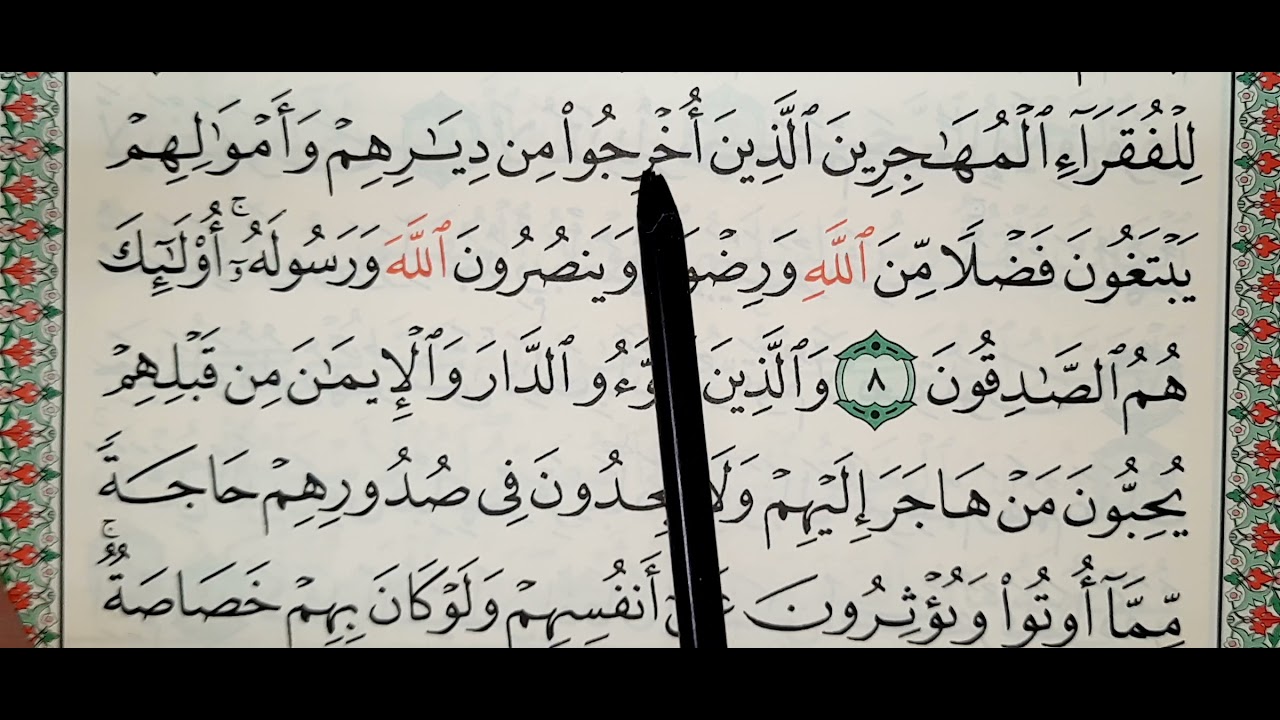 لِلْفُقَرَآءِ ٱلْمُهَـٰجِرِينَ ٱلَّذِينَ أُخْرِجُوا۟ مِن دِيَـٰرِهِمْ وَأَمْوَٰلِهِمْ
يَبْتَغُونَ فَضْلًا مِّنَ ٱللَّهِ وَيَنصُرُونَ ٱللَّهَ وَرَسُولَهُۥٓ ۚ أُو۟لَـٰٓئِكَ
هُمُ ٱلصَّـٰدِقُونَ ٨ وَٱلَّذِينَ ٱلدَّارَ وَٱلْإِيمَـٰنَ مِن قَبْلِهِمْ
يُحِبُّونَ مَنْ هَاجَرَ إِلَيْهِمْ وَلَا فِى صُدُورِهِمْ حَاجَةً
مِّمَّآ أُوتُوا۟ وَيُؤْثِرُونَ أَنفُسِهِمْ وَلَوْ كَانَ بِهِمْ خَصَاصَةٌ ۚ